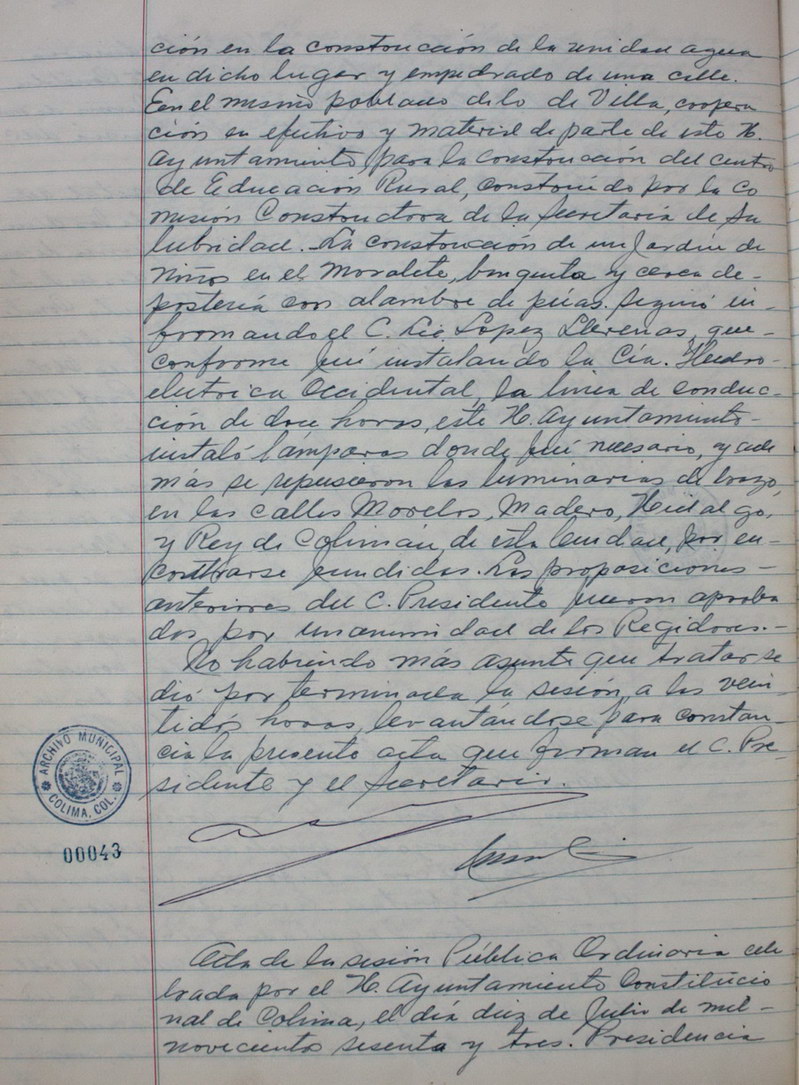 ción en la construcción de la unidad agua
en dicho lugar y empedrado de una calle.
En el mismo poblado de lo de Villa, coopera
ción en efectivo y material de parte de este H.
Ayuntamiento, para la construcción del centro
de Educación Rural, construido por la Co
misión Constructora de la Secretaría de Sa
lubridad. La construcción de un Jardín de
Niños en el Moralete, banqueta y cerca de-
postería con alambre de púas. Siguió in-
formando el C. Lic. López Llerenas, que-
conforme fué instalando la Cía. Hidro-
eléctrica Occidental, la línea de conduc-
ción de doce horas, este H. Ayuntamiento-
instaló lámparas donde fué necesario, y ade
más se repusieron las luminarias de brazo,
en las calles Morelos, Madero, Hidalgo,
y Rey de Colimán, de esta ciudad, por en-
contrarse fundidas. Las proposiciones-
anteriores del C. Presidente fueron aproba
das por unanimidad de los Regidores.-
No habiendo más asunto que tratar se
dió por terminada la sesión, a las vein-
tidós horas, levantándose para constan-
cia la presente acta que firman el C. Pre-
sidente y el Secretario.
ARCHIVO MUNICIPAL
COLIMA, COL.
00043
Acta de la sesión Pública Ordinaria cele
brada por el H. Ayuntamiento Constitucio
nal de Colima, el día diez de Julio de mil-
novecientos sesenta y tres. Presidencia